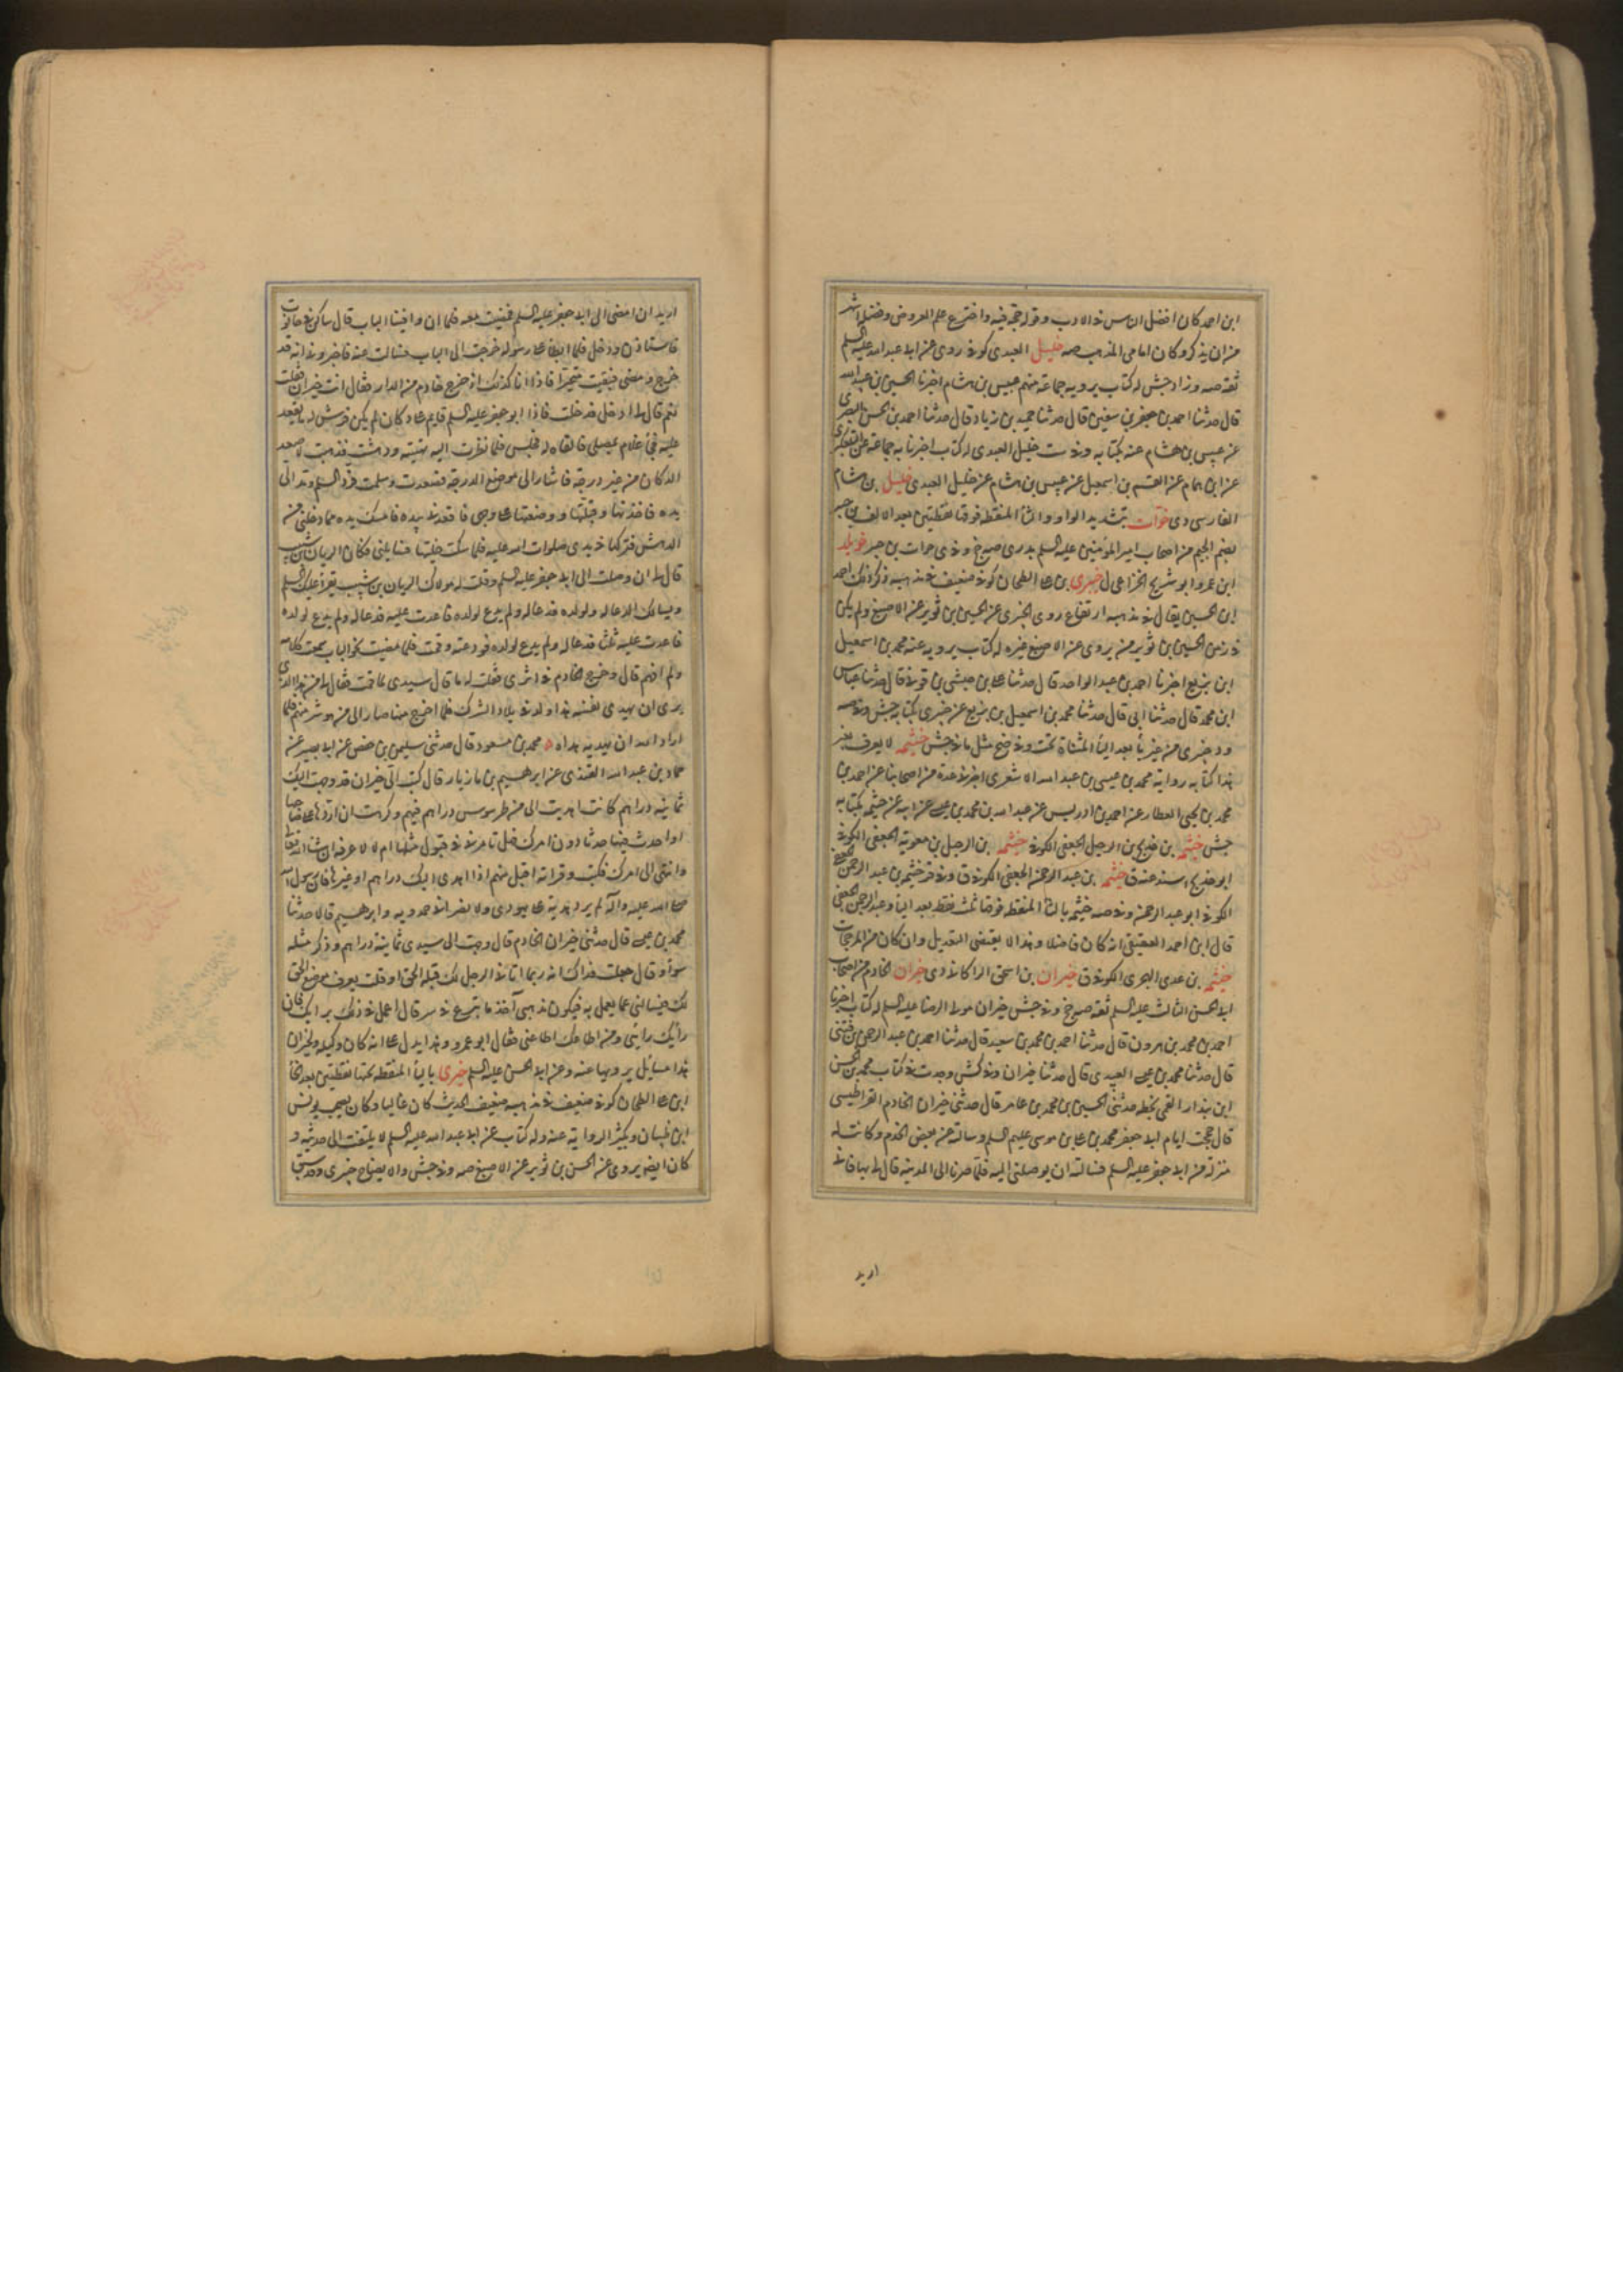 ابن احمد كان افضل الناس في الادب و قوله حجة فيه و اخترع علم العروض و فضله اشهر
من ان يذكر و كان امامى المذهب صه خليل العبدى كوفى روى عن ابى عبد الله عليه السلم
ثقة صه و زاد جش له كتاب يرويه جماعة منهم عبيس بن هشام اخبرنا الحسين بن عبيد الله
قال حدثنا احمد بن جعفر بن سفين قال حدثنا حميد بن زياد قال حدثنا احمد بن الحسن البصرى
عن عبيس بن هشام عنه بكتابه و فى ست خليل العبدى له كتاب اخبرنا به جماعة عن التلعكبرى
عن ابن همام عن القسم بن اسمعيل عن عبيس بن هشام عن خليل العبدى خليل بن هشام
الفارسى دى خوات بتشديد الواو و التا المنقطه فوقها نقطتين بعد الالف بن جبير
بضم الجيم من اصحاب امير المؤمنين عليه السلم بدرى صه جخ و فى ى خوات بن جبر خويلد
ابن عمرو ابو شريح الخزاعى ل خيبرى بن على الطحان كوفى ضعيف فى مذهبه ذكر ذلك احمد
ابن الحسين يقال فى مذهبه ارتفاع روى الخيبرى عن الحسين بن ثوير عن الاصبغ و لم يكن
فى زمن الحسين بن ثوير من يروى عن الاصبغ غيره له كتاب يرويه عنه محمد بن اسمعيل
ابن بزيع اخبرنا احمد بن عبد الواحد قال حدثنا على بن حبشى بن قونى قال حدثنا عباس
ابن محمد قال حدثنا ابى قال حدثنا محمد بن اسمعيل بن بزيع عن خيبرى بكتابه جش و فى صه
و د خبرى من غير يأ بعد اليأ المثناة تحت و فى ضح مثل ما فى جش خيثمه لا يعرف بغير
هذا كتابه رواية محمد بن عيسى بن عبد الله الاشعرى اخبرنى عدة من اصحابنا عن احمد بن
محمد بن يحيى العطار عن احمد بن ادريس عن عبد الله بن محمد بن عيسى عن ابيه عن خيثمه بكتابه
جش خيثمه بن خديج بن الرحيل الجعفى الكوفى خيثمه بن الرحيل بن معوية الجعفى الكوفى
ابو خديج اسند عنه ق خيثمه بن عبد الرحمن الجعفى الكوفى ق و فى قر خيثمه بن عبد الرحمن الجعفى
الكوفى ابو عبد الرحمن و فى صه خيثمه بالثا المنقطه فوقها ثلث نقط بعد اليا و عبد الرحمن الجعفى
قال ابن احمد العقيقى انه كان فاضلا و هذا لا يقتضى التعديل و ان كان من المرجحات
خيثمه بن عدى الهجرى الكوفى ق خيران بن اسحق الراكانى دى خيران الخادم من اصحاب
ابى الحسن الثالث عليه السلم ثقة صه جخ و فى جش خيران مولى الرضا عليه السلم له كتاب اخبرنا
احمد بن محمد بن هرون قال حدثنا احمد بن محمد بن سعيد قال حدثنا احمد بن عبد الرحمن بن فتنى
قال حدثنا محمد بن عيسى العبيدى قال حدثنا خيران و فى كش وجدت فى كتاب محمد بن الحسن
ابن بندار القمى بخطه حدثنى الحسين بن محمد بن عامر قال حدثنى خيران الخادم القراطيسى
قال حججت ايام ابى جعفر محمد بن على بن موسى عليهم السلم و سالته عن بعض الخدم و كانت له
منزلة من ابى جعفر عليه السلم فسالته ان يوصلنى اليه فلما صرنا الى المدينه قال لى تهيا فانى
اريد
اريد ان امضى الى ابى جعفر عليه السلم فمضيت معه فلما ان وافينا الباب قال ساكن فى حانوت
فاستاذن و دخل فلما ابطا على رسوله خرجت الى الباب فسالت عنه فاخبرونى انه قد
خرج و مضى فبقيت متحيرا فاذا انا كذلك اذ خرج خادم من الدار فقال انت خيران فقلت
نعم قال لى ادخل فدخلت فاذا ابو جعفر عليه السلم قايم على دكان لم يكن فرش له ما يقعد
عليه فجاء غلام بمصلى فالقاه له فجلس فلما نظرت اليه تهيبته و دهشت فذهبت لاصعد
الدكان من غير درجة فاشار الى موضع الدرجة فصعدت و سلمت فرد السلم و مد الى
يده فاخذتها و قبلتها و وضعتها على وجهى فاقعدنى بيده فامسكت يده مما دخلنى من
الدهش فتركها فى يدى صلوات الله عليه فلما سكنت خليتها فسايلنى و كان الريان بن شبيب
قال لى ان وصلت الى ابى جعفر عليه السلم و قلت له مولاك الريان بن شبيب يقرأ عليك السلم
و يسالك الدعا له و لولده فدعا له و لم يدع لولده فاعدت عليه فدعا له و لم يدع لولده
فاعدت عليه ثلثا فدعا له و لم يدع لولده فودعته و قمت فلما مضيت نحو الباب سمعت كلامه
و لم افهم قال و خرج الخادم فى اثرى فقلت له ما قال سيدى لما قمت فقال لى من هذا الذى
يرى ان يهدى نفسه هذا ولد فى بلاد الشرك فلما اخرج منها صار الى من هو شر منهم فلما
اراد الله ان يهديه هداه ه محمد بن مسعود قال حدثنى سليمن بن حفص عن ابى بصير عن
حماد بن عبد الله القندى عن ابرهيم بن مهزيار قال كتب الى خيران قد وجهت اليك
ثمانية دراهم كانت اهديت الى من طرسوس دراهم فيهم و كرهت ان اردها على صاحبها
او احدث فيها حدثا دون امرك فهل تامرنى فى قبول مثلها ام لا لا عرفه ان شا الله تعالى
و انتهى الى امرك فكتب و قراته اقبل منهم اذا اهدى اليك دراهم او غيرها فان رسول الله
صلى الله عليه و آله لم يرد هدية على يهودى و لا نصرانى حمدويه و ابرهيم قالا حدثنا
محمد بن عيسى قال حدثنى خيران الخادم قال وجهت الى سيدى ثمانية دراهم و ذكر مثله
سوا و قال جعلت فداك انه ربما اتانى الرجل لك قبله الحق او قلت يعرف موضع الحق
لك فيسالنى عما يعمل به فيكون مذهبى آخذ ما يتبرع فى سر قال اعمل فى ذلك برايك فان
رأيك رايى و من اطاعك اطاعنى فقال ابو عمرو و هذا يدل على انه كان وكيله و لخيران
هذا مسايل يرويها عنه و عن ابى الحسن عليه السلم خيبرى باليأ المنقطه تحتها نقطتين بعد الخأ
ابن على الطحان كوفى ضعيف فى مذهبه ضعيف الحديث كان غاليا و كان يصحب يونس
ابن ظبيان و يكثر الرواية عنه و له كتاب عن ابى عبد الله عليه السلم لا يلتفت الى حديثه و
كان ايضه يروى عن الحسن بن ثوير عن الاصبغ صه و فى جش و الايضاح خيبرى و قد سبق